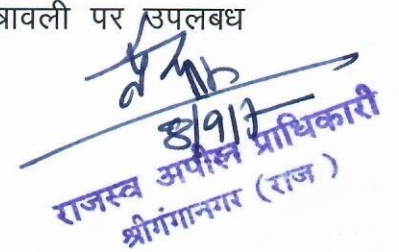 त्रावली पर उपलबध
8/9/17
राजस्व अपील प्राधिकारी
श्रीगंगानगर (राज )